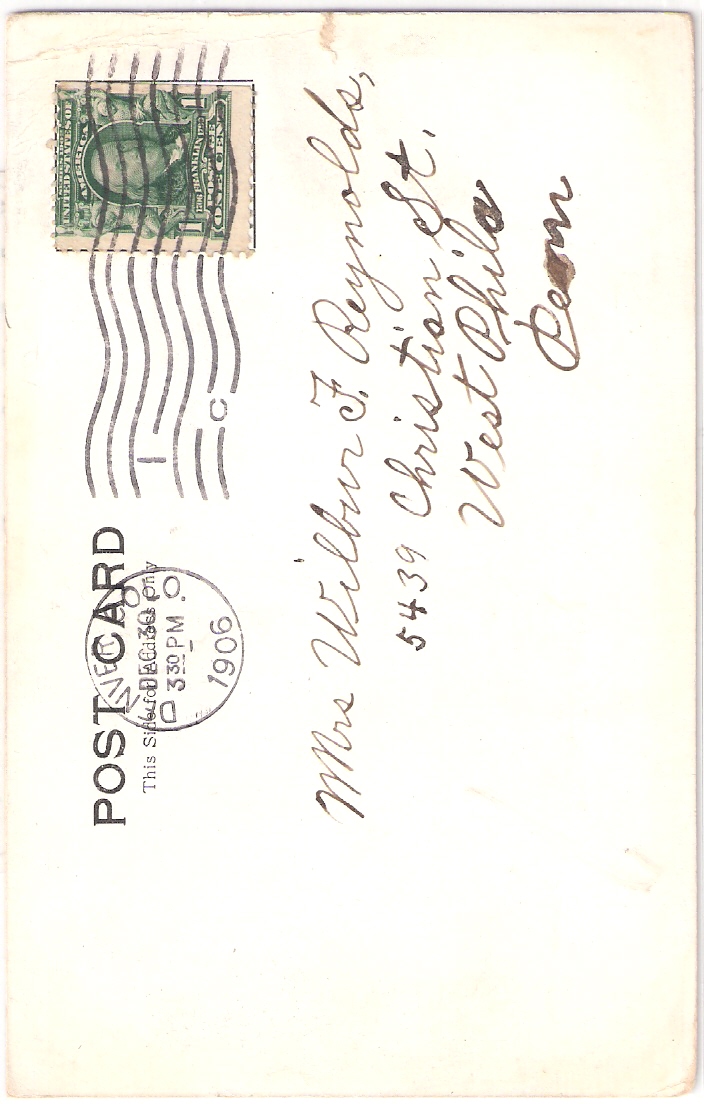 POST CARD
This Side for Address Only
DENVER COLO
DEC 30
3 30 PM
1906
1 C
UNITED STATES OF
AMERICA
FRANKLIN
1 ONE CENT 1
Mrs Wilbur F. Reynolds,
5439 Christian St.
West Phila
Penn